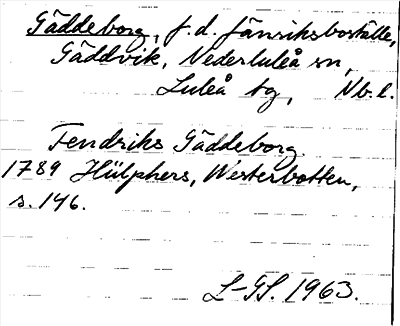 Gäddeborg, f.d. fänriksboställe,
Gäddvik, Nederluleå sn,
Luleå tg, Nb.l.
Fendriks Gäddeborg
1789 Hülphers, Westerbotten,
s. 146.
L-GS. 1963.